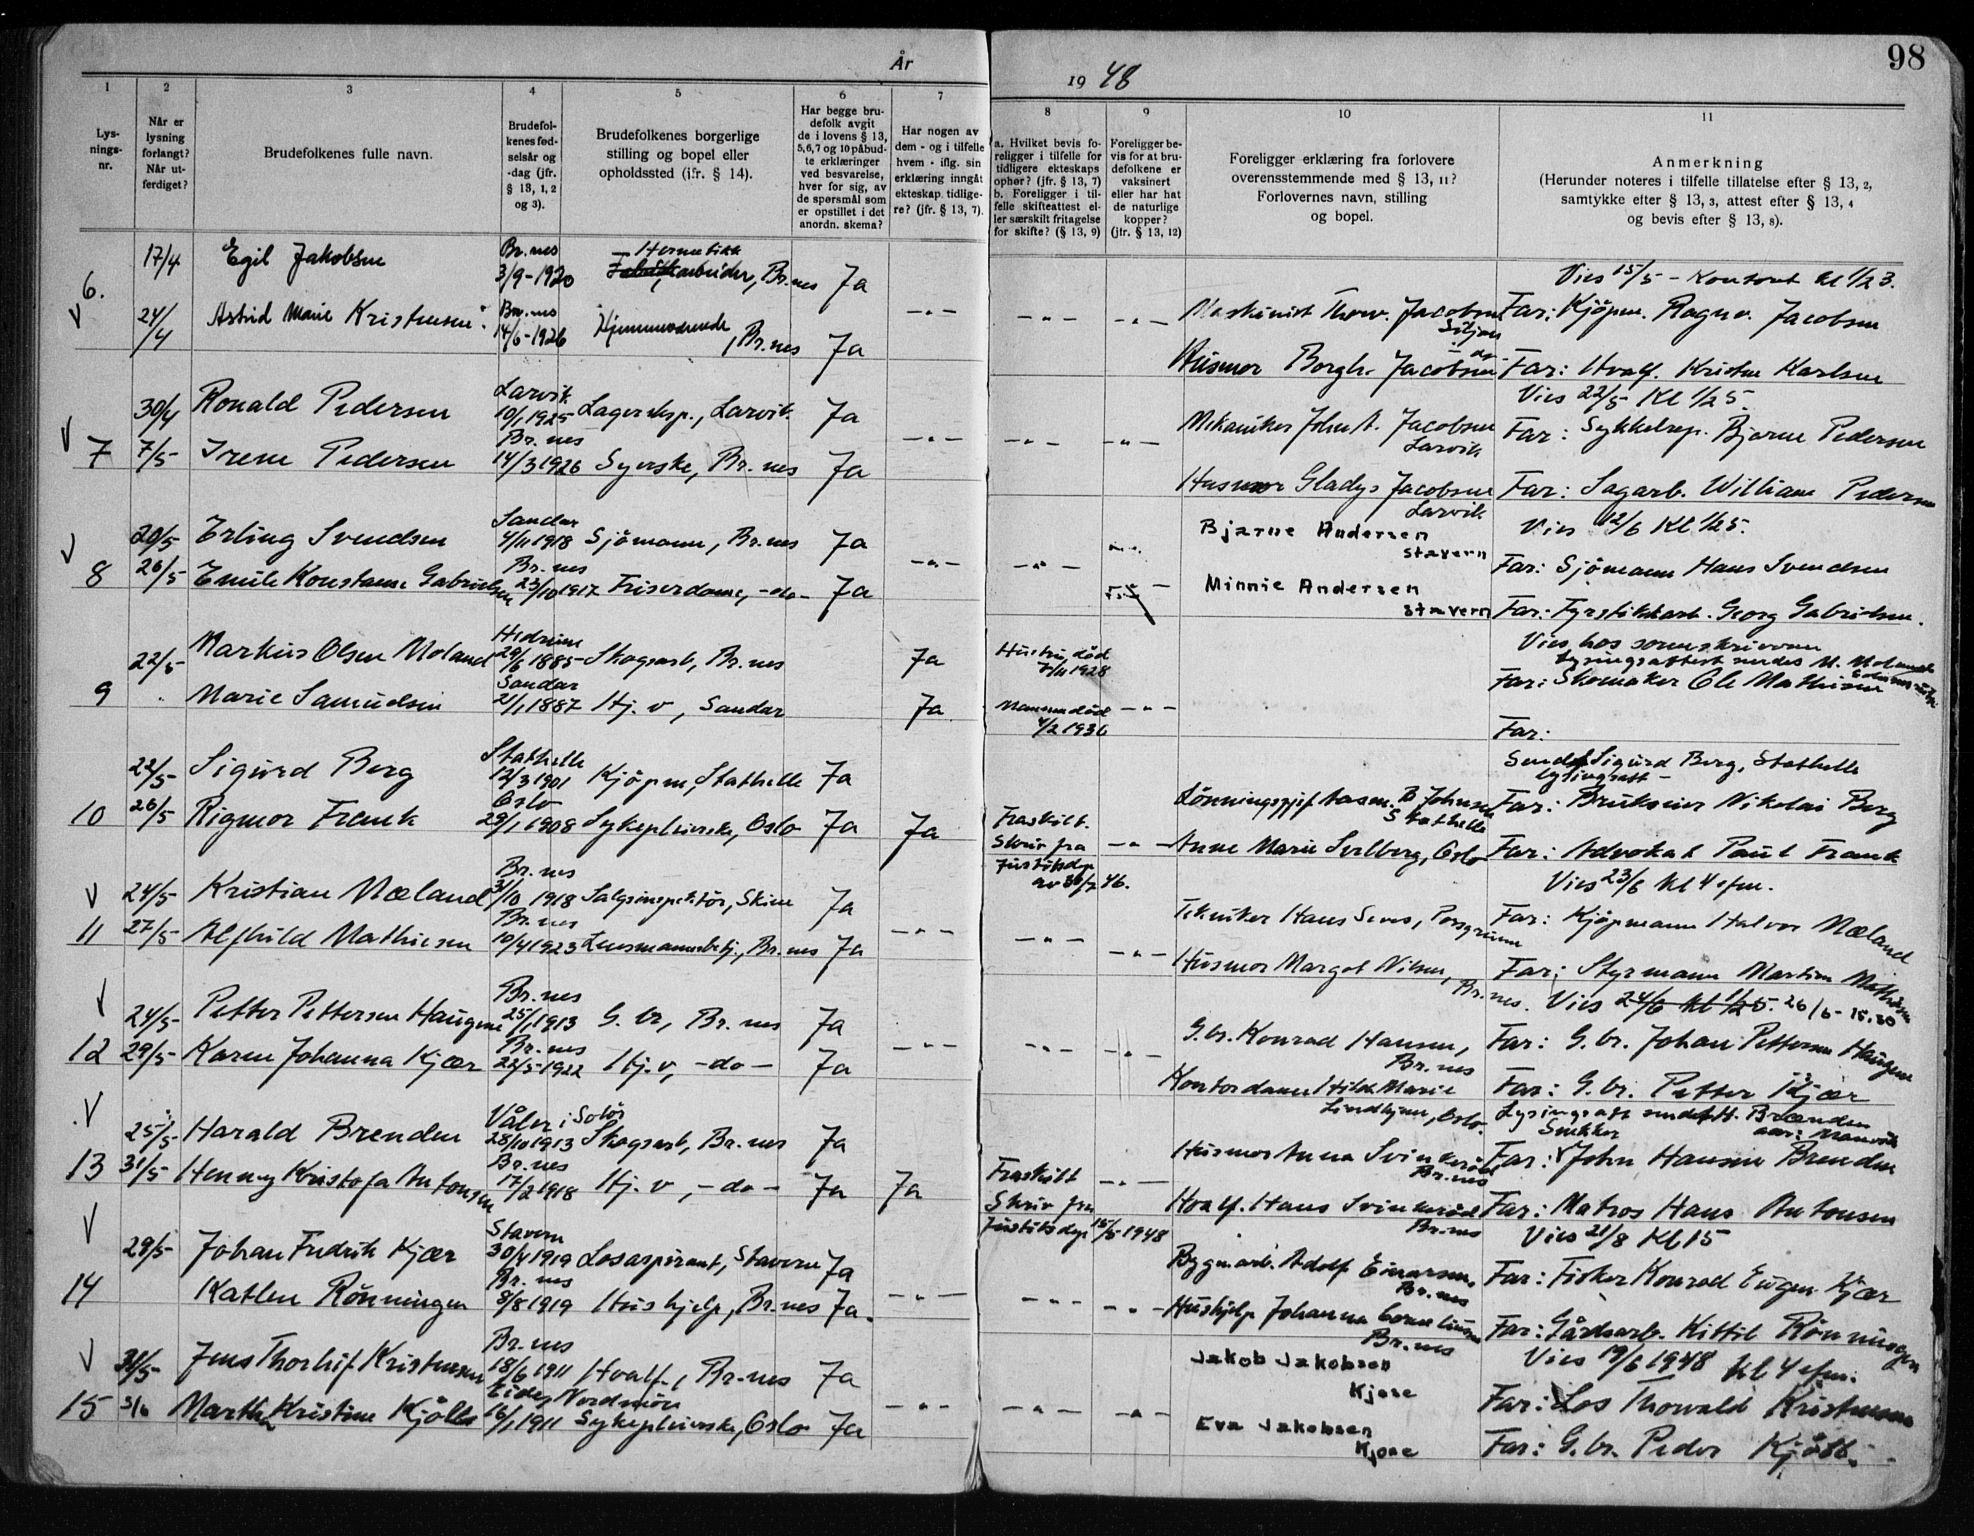 98
År
19 48
1
2
3
4
5
6
7
8
9
10
11
Lys-
nings-
nr.
Når er
lysning
forlangt?
Når ut-
ferdiget?
Brudefolkenes fulle navn.
Brudefol-
kenes fød-
selsår og
-dag (jfr.
§ 13, 1, 2
og 3).
Brudefolkenes borgerlige
stilling og bopel eller
opholdssted (jfr. § 14).
Har begge bru-
defolk avgit
de i lovens § 13,
5,6,7 og 10 påbud-
te erklæringer
ved besvarelse,
hver for sig, av
de spørsmål som
er opstillet i det
anordn. skema?
Har nogen av
dem - og i tilfelle
hvem - iflg. sin
erklæring inngåt
ekteskap tidlige-
re? (jfr. § 13, 7).
a. Hvilket bevis fo-
religger i tilfelle for
tidligere ekteskaps
ophør? (jfr. § 13, 7)
b. Foreligger i til-
felle skifteattest el-
ler særskilt fritagelse
for skifte? (§ 13, 9)
Foreligger be-
vis for at bru-
defolkene er
vaksinert
eller har hat
de naturlige
kopper?
(jfr. § 13, 12)
Foreligger erklæring fra forlovere
overensstemmende med § 13, 11?
Forlovernes navn, stilling
og bopel.
Anmerkning
(Herunder noteres i tilfelle tillatelse efter § 13, 2,
samtykke efter § 13, 3, attest efter § 13, 4
og bevis efter § 13, 8).
6.
17/4 Egil Jakobsen Br.nes 3/9-1920 Hermetikk arbeider, Br.nes Ja
Vies 15/5 - Kontoret kl 1/2 3.
24/4 Astrid Marie Kristensen Br.nes 14/6-1926 Hjemmeværende, Br.nes Ja
Maskinist Thorv. Jacobsen Siljan Far: Kjöpm. Ragnv. Jacobsen
Husmor Borgh. Jacobsen do- Far: Hvalf. Kristen Karlsen
Vies 22/5 Kl 1/2 5.
7
30/4 Ronald Pedersen Larvik 10/1 1925 Lagereksp., Larvik. Ja
Mekaniker John A. Jacobsen Larvik Far: Sykkelrep. Bjarne Pedersen
7/5- Irene Pedersen Br.nes 14/3 1926 Syerske, Br.nes Ja
Husmor Gladys Jacobsen Larvik Far: Sagarb. William Pedersen
Vies 12/6 Kl 1/2 5.
8
20/5- Erling Svendsen Sandar 4/11 1918 Sjömann, Br.nes Ja
Bjarne Andersen Stavern Far: Sjömann Hans Svendsen
26/5- Emilie Konstanse Gabrielsen Br.nes 23/10 1917 Friserdame, -do- Ja
Minnie Andersen Stavern Far: Fyrstikkarb. Georg Gabrielsen.
Vies hos sorenskriveren
Lysingsattest sendes M. Moland
9
22/5- Markus Olsen Moland Hedrum 29/6 1885- Skogsarb, Br.nes Ja Hustru död 7/11 1928
Far: Skomaker Ole Mathisen
Marie Samuelsen Sandar 2/1 1887 Hj. v, Sandar Ja Mannen död 4/2 1936
Far:
10
22/5- Sigurd Berg Stathelle 12/3 1901 Kjöpm, Stathelle Ja
Sendt Sigurd Berg, Stathelle
lysingsatt -
Far: Brukseier Nikolai Berg
26/5- Rigmor Frank Oslo 29/1 1908 Sykepleierske, Oslo Ja Ja Fraskilt. Skriv fra Justisdep av 46.
Anne Marie Selberg, Oslo Far: Advokat Paul Frank
Vies 23/6 kl 4 efm.
11
24/5- Kristian Mæland Br.nes 31/10 1918 Salgsinspektör, Skien Ja
Tekniker Hans Sens, Porsgrunn Far: Kjöpmann Halvor Mæland
27/5- Alfhild Mathisen Br.nes 10/4 1923 Lensmannsbetj., Br.nes Ja
Husmor Margot Nilsen, Br.nes. Far: Styrmann Martin Mathisen
Vies 24/6 kl 1/2 5. 26/6 - 15.30
12
24/5- Petter Pettersen Haugene Br.nes 25/1 1913 G. br, Br.nes Ja
G.br. Konrad Hansen, Br.nes Far: G. br. Johan Pettersen Haugene
29/5- Karen Johanna Kjær Br.nes 22/5-1922 Hj.v, -do- Ja
Kontordame Hilda Marie Lindhjem, Oslo. Far: G. br. Petter Kjær
Lysingsatt sendt H. Brænden
13
25/5- Harald Brenden Våler i Solör 28/10 1913 Skogsarb, Br.nes Ja
Husmor Anna Svinkeröd Br.nes Far: Snekker John Hansen Brenden
31/5- Henny Kristofa Antonsen Br.nes 17/2 1918 Hj. v, -do- Ja Ja Fraskilt Skriv fra Justisdep 15/5 1948
Hvalf. Hans Svinkeröd Br.nes Far: Matros Hans Antonsen
Vies 21/8 Kl 15
14
29/5- Johan Fredrik Kjær Stavern 30/4 1919 Losaspirant, Stavern Ja
Bygn.arb. Adolf Einarsen, Br.nes Far: Fisker Konrad Eugen Kjær
Katlen Rönningen Br.nes 8/8 1919 Hushjelp, Br.nes Ja.
Hushjelp Johanna Corneliusen Br.nes Far: Gårdsarb. Kittil Rönningen
Vies 19/6 1948 kl 4 efm.
15
31/5- Jens Thorleif Kristensen Br.nes 18/6 1911 Hvalf., Br.nes Ja
Jakob Jakobsen Kjose Far: Los Thorvald Kristensen
3/6 Marthe Kristine Kjölls Eide, Nordmöre 16/1 1911 Sykepleierske, Oslo Ja
Eva Jakobsen Kjose Far: G. br. Peder Kjölls.